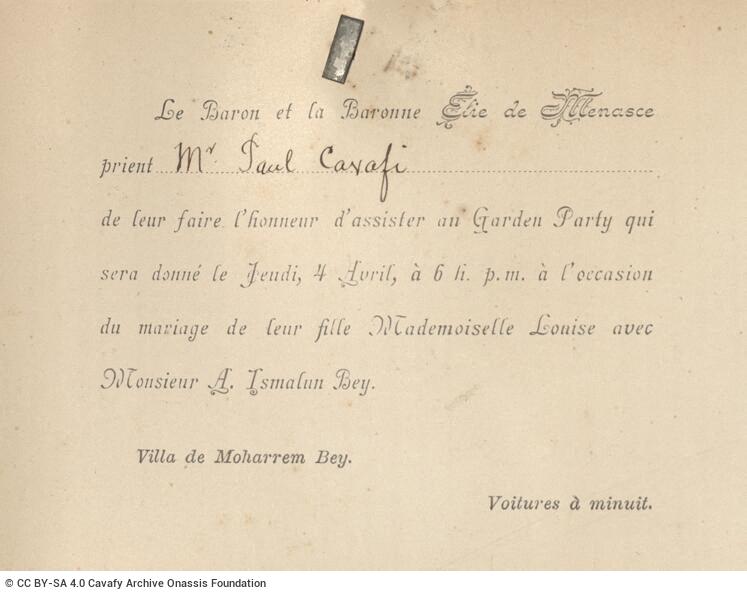 Le Baron et la Baronne Elie de Menasce
prient Mr Paul Cavafi
de leur faire l'honneur d'assister au Garden Party qui
sera donné le Jeudi, 4 Avril, à 6 h. p.m. à l'occasion
du mariage de leur fille Mademoiselle Louise avec
Monsieur A. Ismalun Bey.
Villa de Moharrem Bey.
Voitures à minuit.
© CC BY-SA 4.0 Cavafy Archive Onassis Foundation